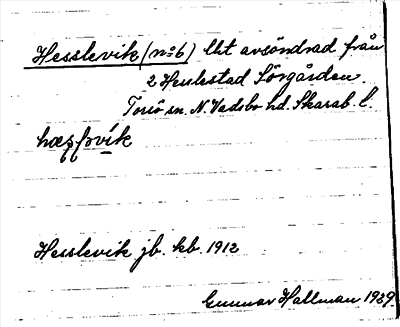 Hesslevik (nr 6) lht avsöndrad från
2 Henlestad Sörgården.
Torsö sn. N. Vadsbo hd. Skarab. l.
Hesslevik jb. kb. 1912
Gunnar Hallman 1929.